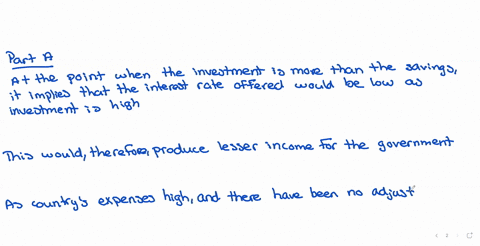 Part A
At the point when the investment is more than the savings,
it implies that the interest rate offered would be low as
investment is high
This would, therefore, produce lesser income for the government
As country's expenses high, and there have been no adjust